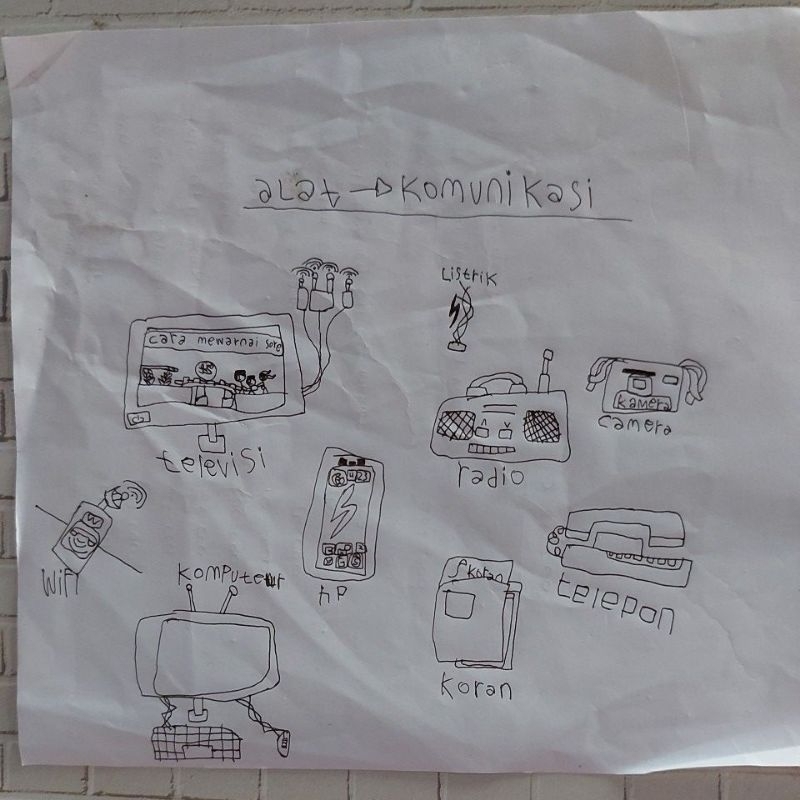 aLat → Komunikasi
Listrik
cara mewarnai
kamera
camera
televisi
radio
W
WiFi
Komputer
hP
Koran
Koran
telepon